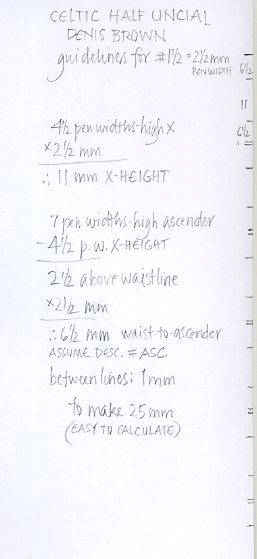 CELTIC HALF UNCIAL
DENIS BROWN
guidelines for #1½ = 2½ mm
PEN WIDTH
6½
11
6½
4½ pen widths-high x
x2½ mm
∴ 11 mm X-HEIGHT
7 pen widths-high ascender
- 4½ p.w. X-HEIGHT
2½ above waistline
x2½ mm
∴ 6½ mm waist-to-ascender
ASSUME DESC. = ASC
between lines: 1mm
to make 25mm
(EASY TO CALCULATE)